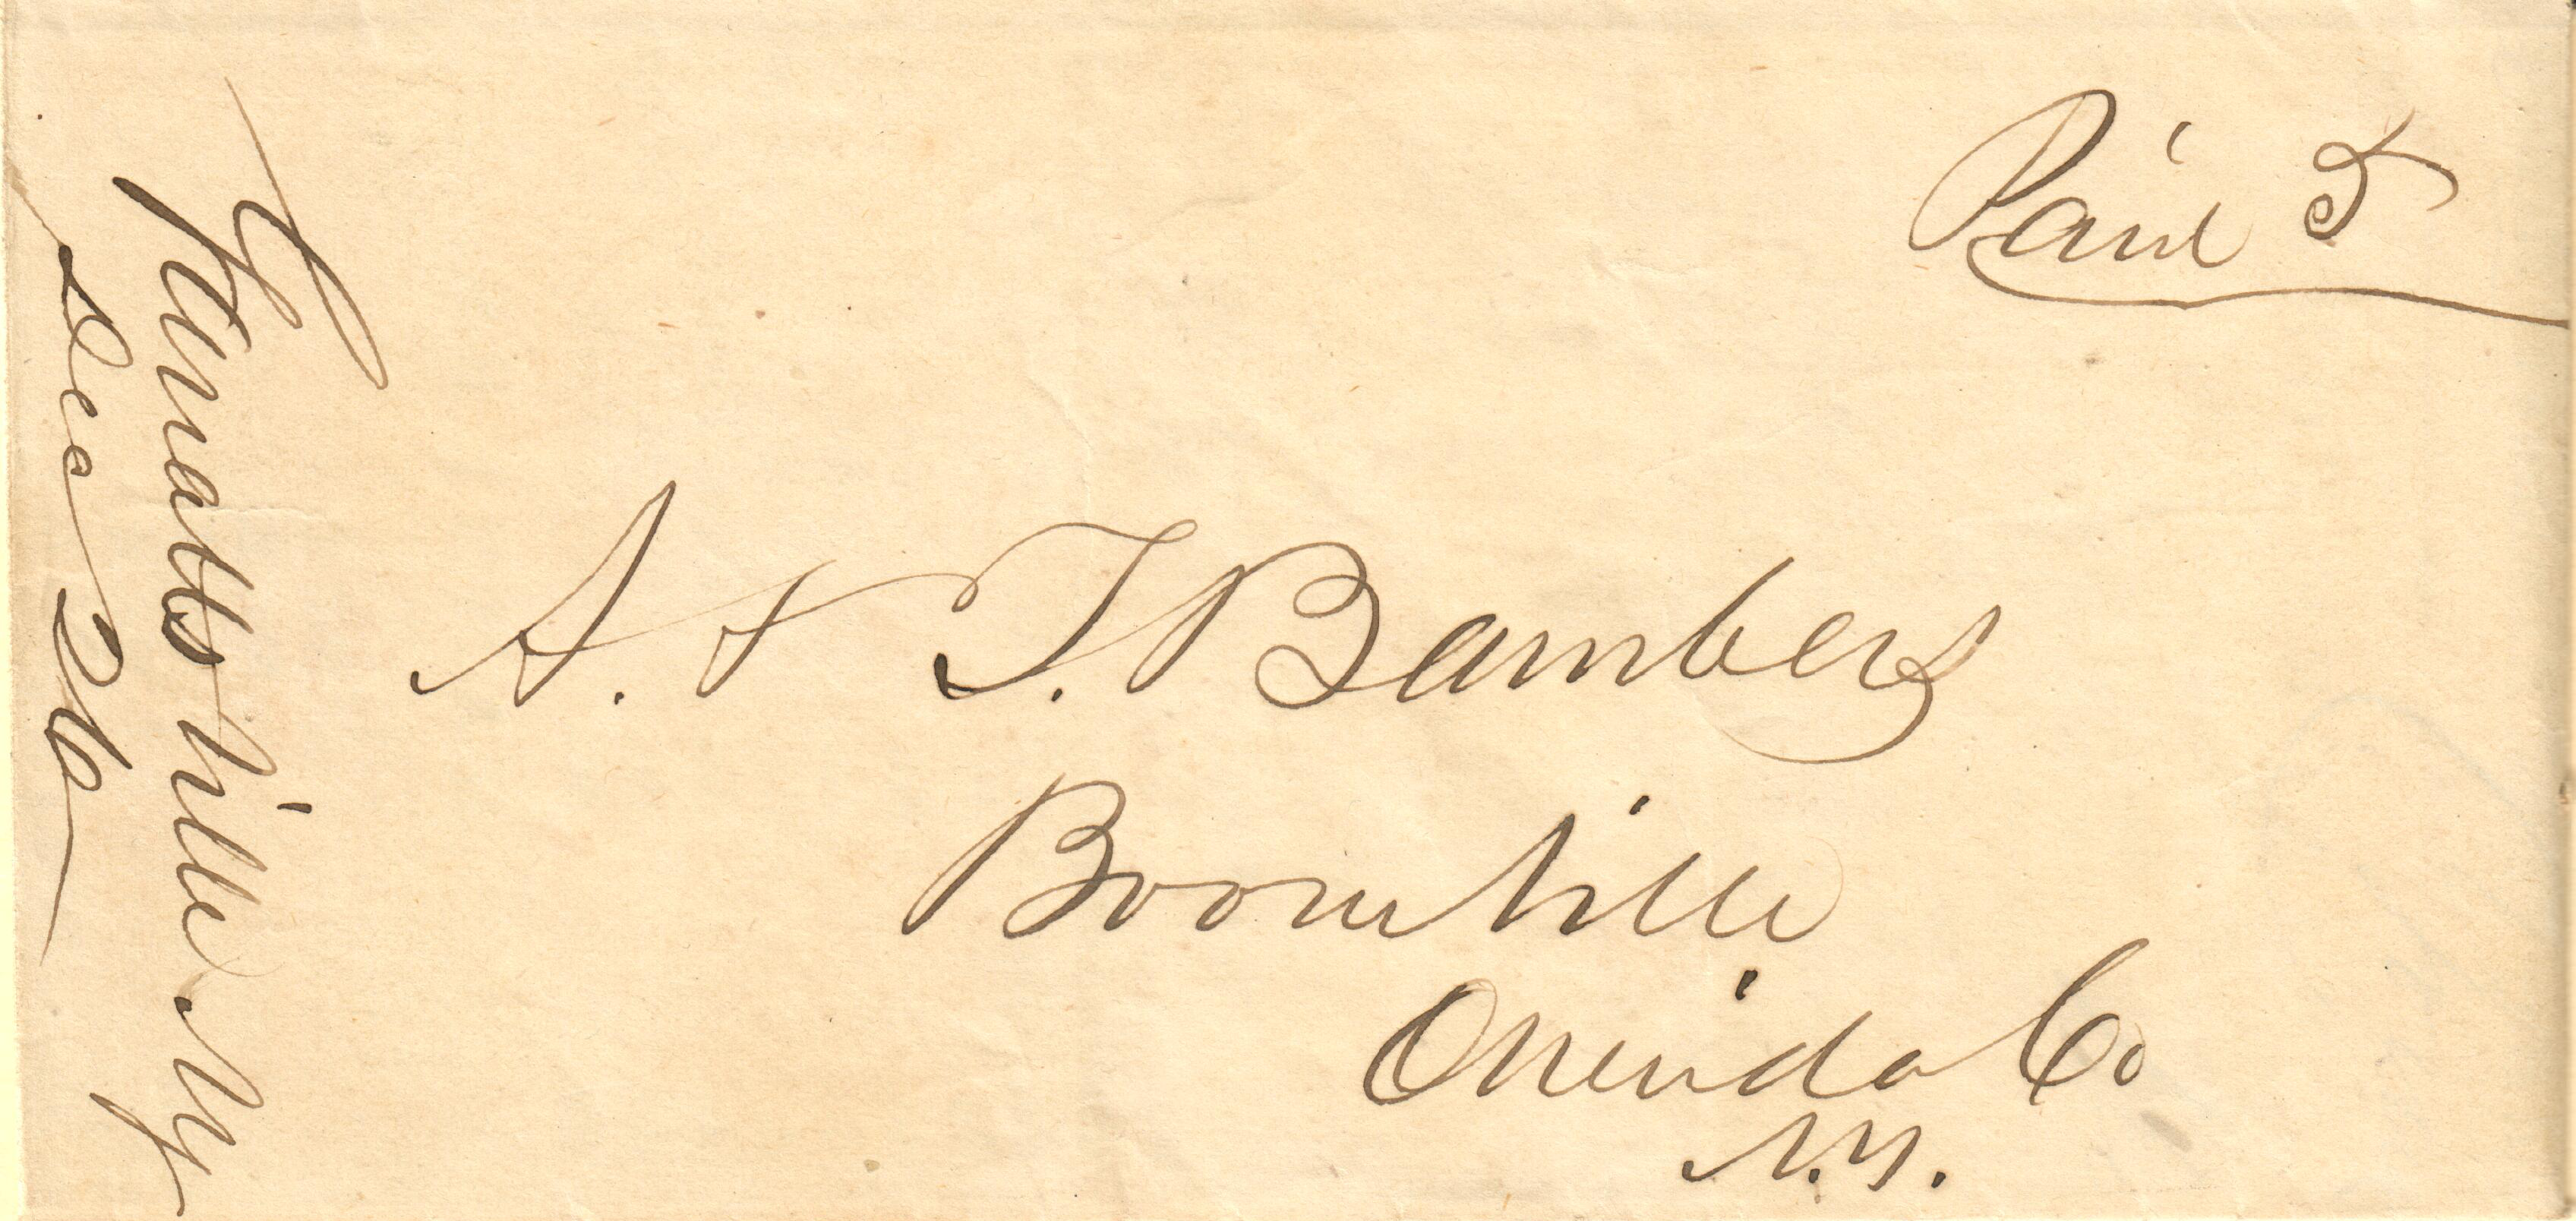 Paid 5
A. & J. Bamber
Boonville
Oneida Co
N.Y.
NY
Dec 26